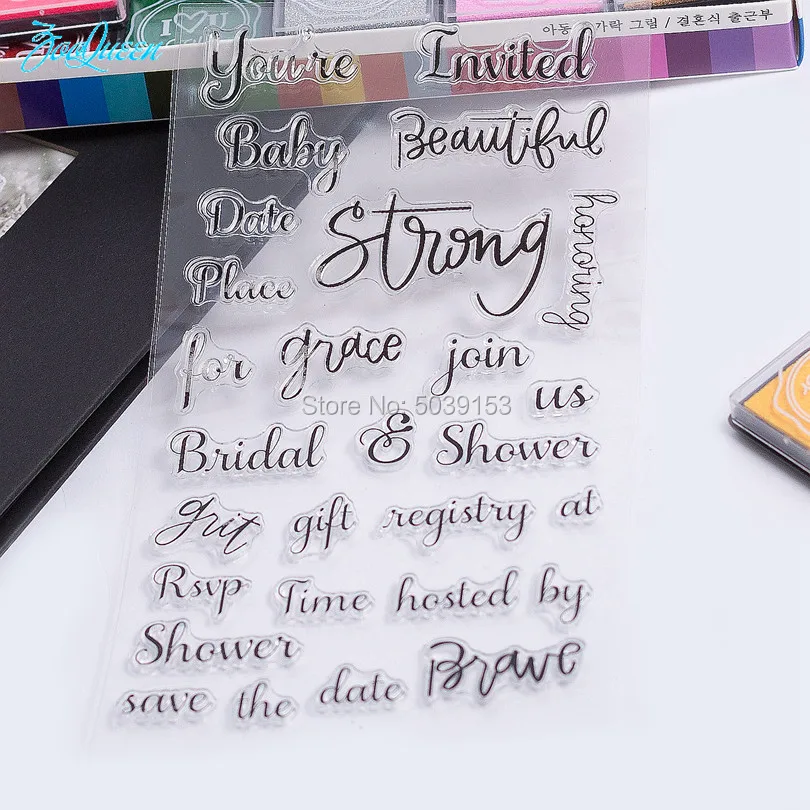 ZouQueen
I U
아동 손가락 그림 / 결혼식 출근부
You're Invited
Baby Beautiful
Date Strong honoring
Place
for grace join
us
Store No: 5039153
Bridal & Shower
grit gift registry at
Rsvp Time hosted by
Shower Brave
save the date